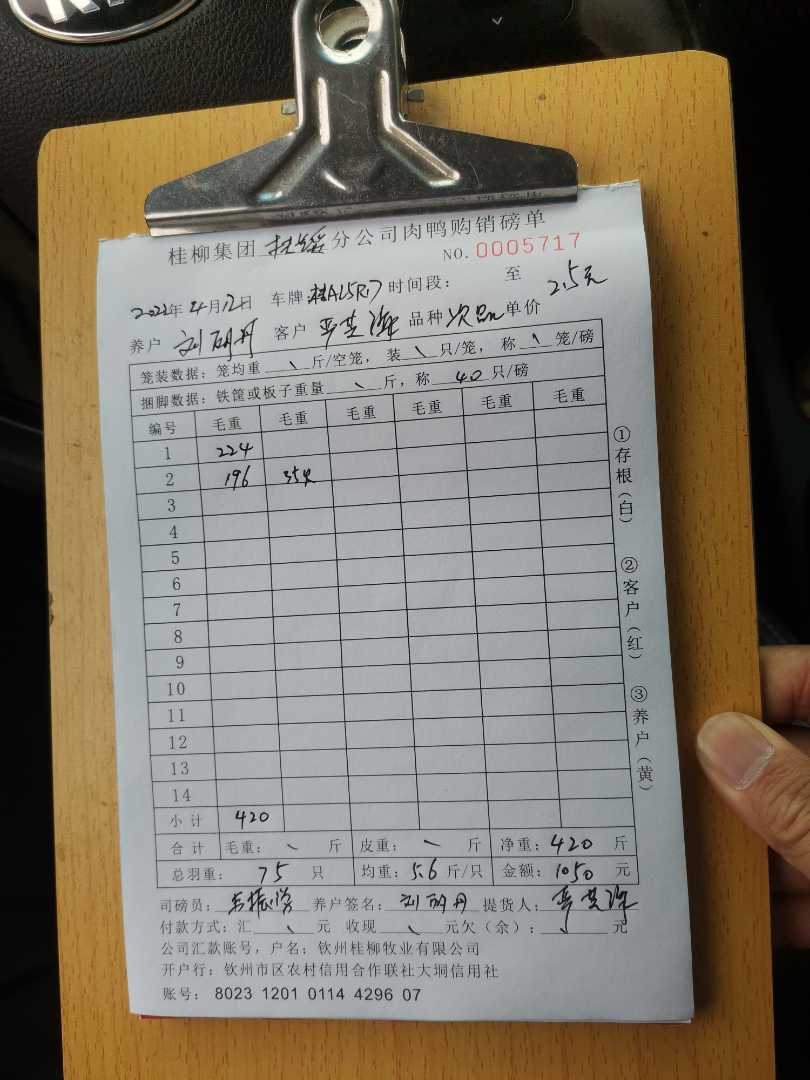 桂柳集团 扶绥 分公司肉鸭购销磅单
NO.0005717
2022年4月12日 车牌:桂A 时间段: 至
养户 刘丽丹 客户 品种 次品 单价 2.5元
笼装数据:笼均重 \ 斤/空笼,装 \ 只/笼,称 \ 笼/磅
捆脚数据:铁筐或板子重量 \ 斤,称 40 只/磅
编号 毛重 毛重 毛重 毛重 毛重 毛重
1 224
2 196 35只
3
4
5
6
7
8
9
10
11
12
13
14
小计 420
合计 毛重: \ 斤 皮重: \ 斤 净重:420 斤
总羽重: 75 只 均重:5.6 斤/只 金额:1050 元
司磅员: 养户签名:刘丽丹 提货人:
付款方式:汇 \ 元 收现 \ 元欠(余): 元
公司汇款账号,户名:钦州桂柳牧业有限公司
开户行:钦州市区农村信用合作联社大垌信用社
账号: 8023 1201 0114 4296 07
①存根(白)
②客户(红)
③养户(黄)